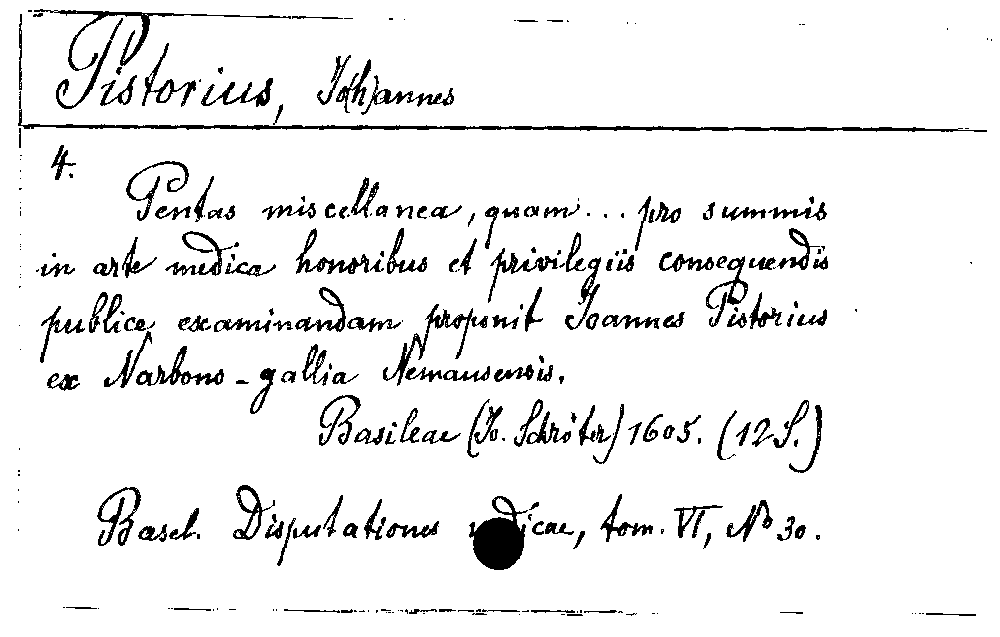 Pistorius, Jo(h)annes
4.
Pentas miscellanea, quam... pro summis
in arte medica honoribus et privilegiis consequendis
publice examinandam proponit Joannes Pistorius
ex Narbono-gallia Nemausensis.
Basileae (Jo. Schröter) 1605. (12 S.)
Basel. Disputationes medicae, tom. VI, No 30.